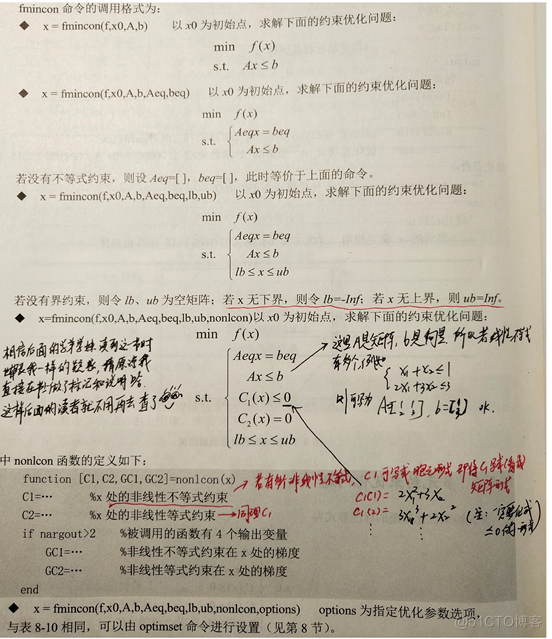 fmincon 命令的调用格式为:
◆ x = fmincon(f,x0,A,b) 以 x0 为初始点，求解下面的约束优化问题:
min f(x)
s.t. Ax ≤ b
◆ x = fmincon(f,x0,A,b,Aeq,beq) 以 x0 为初始点，求解下面的约束优化问题:
min f(x)
s.t. { Aeqx = beq
Ax ≤ b
若没有不等式约束，则设 Aeq=[ ]，beq=[ ]，此时等价于上面的命令。
◆ x = fmincon(f,x0,A,b,Aeq,beq,lb,ub) 以 x0 为初始点，求解下面的约束优化问题:
min f(x)
s.t. { Aeqx = beq
Ax ≤ b
lb ≤ x ≤ ub
若没有界约束，则令 lb、ub 为空矩阵；若 x 无下界，则令 lb=-Inf；若 x 无上界，则 ub=Inf。
◆ x=fmincon(f,x0,A,b,Aeq,beq,lb,ub,nonlcon)以 x0 为初始点，求解下面的约束优化问题:
min f(x)
s.t. { Aeqx = beq
Ax ≤ b
C₁(x) ≤ 0
C₂(x) = 0
lb ≤ x ≤ ub
这里A是矩阵, b是向量, 所以若线性不
有多个, 例如
{ x₁+x₂≤1
2x₁+3x₂≤3
则可写为 A=
b=
ok.
直接在书做了标记和说明
这样后面的读者就不用再去查了
中 nonlcon 函数的定义如下:
function [C1,C2,GC1,GC2]=nonlcon(x)
C1=… %x 处的非线性不等式约束
C2=… %x 处的非线性等式约束
if nargout>2 %被调用的函数有 4 个输出变量
GC1=… %非线性不等式约束在 x 处的梯度
GC2=… %非线性等式约束在 x 处的梯度
end
若有多个非线性不等式
同理C₁
C1可写成
即将C₁写成
矩阵形式
C₁(1)=
C₁(2)=
(注: 一定要化成
≤0的形式
◆ x = fmincon(f,x0,A,b,Aeq,beq,lb,ub,nonlcon,options) options 为指定优化参数选项，
与表 8-10 相同，可以由 optimset 命令进行设置（见第 8 节）。
@51CTO博客